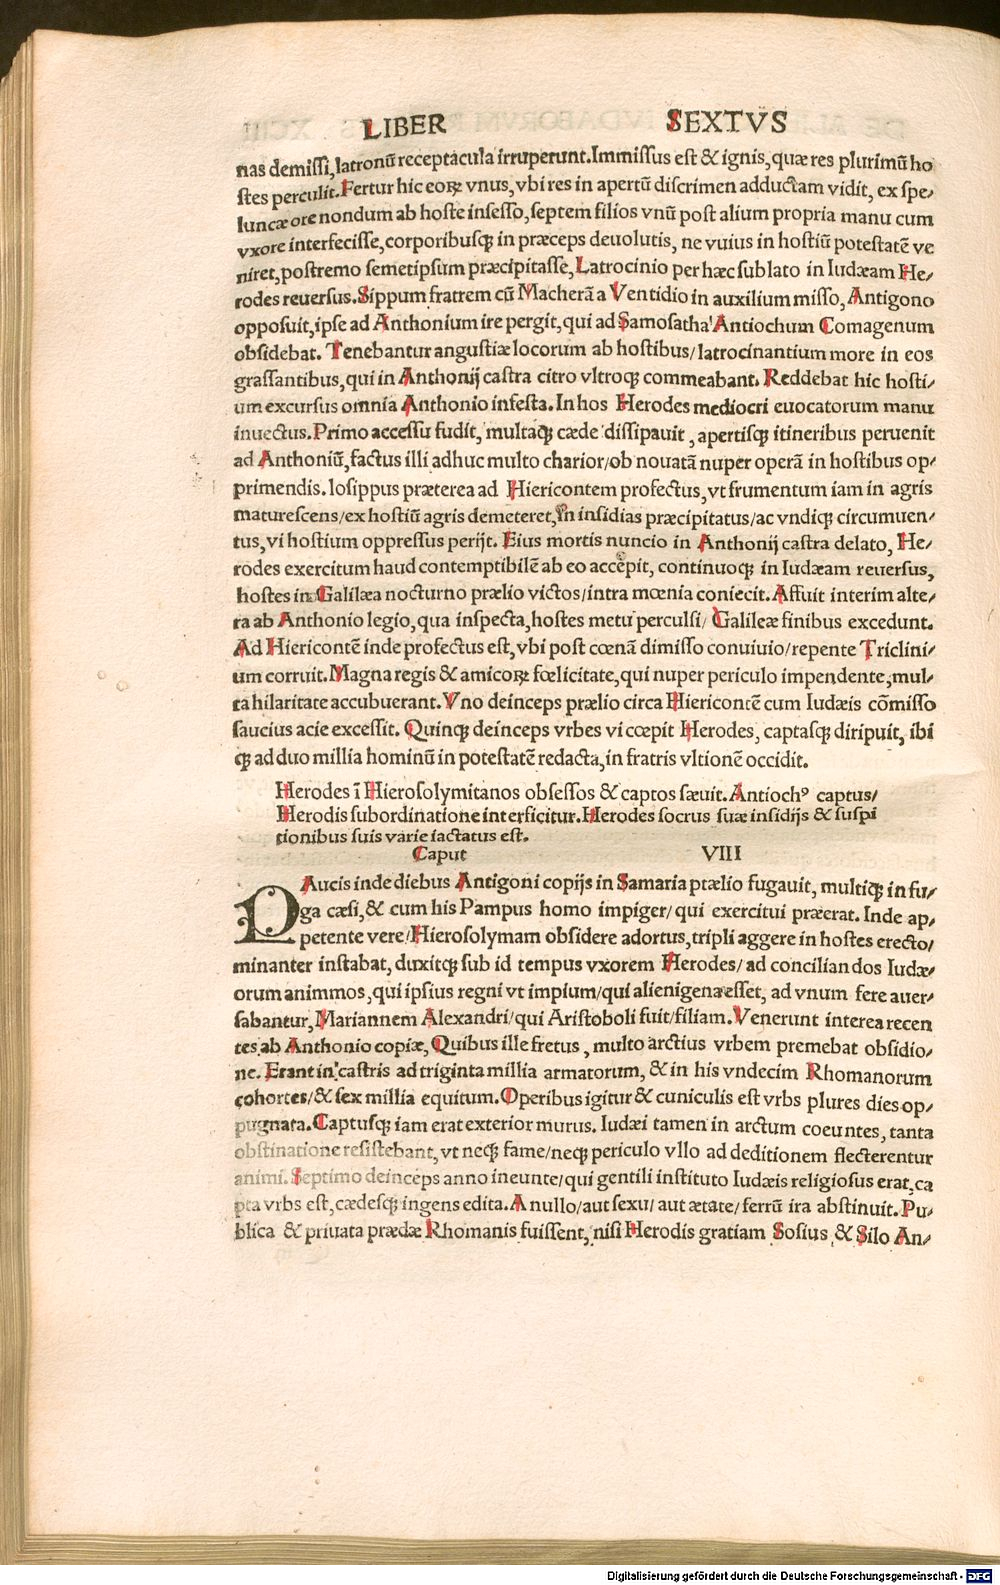 LIBER SEXTVS
nas demissi, latronū receptacula irruperunt. Immissus est & ignis, quæ res plurimū ho
stes perculit. Fertur hic eoꝝ vnus, vbi res in apertū discrimen adductam vidit, ex spe⸗
luncæ ore nondum ab hoste insesso, septem filios vnū post alium propria manu cum
vxore interfecisse, corporibusꝗ in præceps deuolutis, ne vuius in hostiū potestatē ve
niret, postremo semetipsum præcipitasse, Latrocinio per hæc sublato in Iudæam He⸗
rodes reuersus. Sippum fratrem cū Macherā a Ventidio in auxilium misso, Antigono
opposuit, ipse ad Anthonium ire pergit, qui ad Samosatha' Antiochum Comagenum
obsidebat. Tenebantur angustiæ locorum ab hostibus/ latrocinantium more in eos
grassantibus, qui in Anthonij castra citro vltroꝗ commeabant. Reddebat hic hosti⸗
um excursus omnia Anthonio infesta. In hos Herodes mediocri euocatorum manu
inuectus. Primo accessu fudit, multaꝗ cæde dissipauit, apertisꝗ itineribus peruenit
ad Anthoniū, factus illi adhuc multo charior/ ob nouatā nuper operā in hostibus op⸗
primendis. Iosippus præterea ad Hiericontem profectus, vt frumentum iam in agris
maturescens/ ex hostiū agris demeteret, in insidias præcipitatus/ ac vndiꝗ circumuen⸗
tus, vi hostium oppressus perijt. Eius mortis nuncio in Anthonij castra delato, He⸗
rodes exercitum haud contemptibilē ab eo accepit, continuoꝗ in Iudæam reuersus,
hostes in Galilæa nocturno prælio victos/ intra mœnia coniecit. Affuit interim alte⸗
ra ab Anthonio legio, qua inspecta, hostes metu perculsi/ Galileæ finibus excedunt.
Ad Hiericontē inde profectus est, vbi post cœnā dimisso conuiuio/ repente Triclini⸗
um corruit. Magna regis & amicoꝝ fœlicitate, qui nuper periculo impendente, mul⸗
ta hilaritate accubuerant. Vno deinceps prælio circa Hiericontē cum Iudæis cōmisso
saucius acie excessit. Quinꝗ deinceps vrbes vi cœpit Herodes, captasꝗ diripuit, ibi
ꝗ ad duo millia hominū in potestatē redacta, in fratris vltionē occidit.
Herodes ī Hierosolymitanos obsessos & captos sæuit. Antiochꝰ captus/
Herodis subordinatione interficitur. Herodes socrus suæ insidijs & suspi
tionibus suis varie iactatus est.
Caput VIII
PAucis inde diebus Antigoni copijs in Samaria prælio fugauit, multiꝗ in fu⸗
ga cæsi, & cum his Pampus homo impiger/ qui exercitui præerat. Inde ap⸗
petente vere/ Hierosolymam obsidere adortus, tripli aggere in hostes erecto/
minanter instabat, duxitꝗ sub id tempus vxorem Herodes/ ad conciliandos Iudæ⸗
orum animmos, qui ipsius regni vt impium/ qui alienigena esset, ad vnum fere auer⸗
sabantur, Mariannem Alexandri/ qui Aristoboli fuit/ filiam. Venerunt interea recen
tes ab Anthonio copiæ, Quibus ille fretus, multo arctius vrbem premebat obsidio⸗
ne. Erant in castris ad triginta millia armatorum, & in his vndecim Rhomanorum
cohortes/ & sex millia equitum. Operibus igitur & cuniculis est vrbs plures dies op⸗
pugnata. Captusꝗ iam erat exterior murus. Iudæi tamen in arctum coeuntes, tanta
obstinatione resistebant, vt neꝗ fame/ neꝗ periculo vllo ad deditionem flecterentur
animi. Septimo deinceps anno ineunte/ qui gentili instituto Iudæis religiosus erat, ca
pta vrbs est, cædesꝗ ingens edita. A nullo/ aut sexu/ aut ætate/ ferrū ira abstinuit. Pu⸗
blica & priuata prædæ Rhomanis fuissent, nisi Herodis gratiam Sosius, & Silo An⸗
Digitalisierung gefördert durch die Deutsche Forschungsgemeinschaft - DFG